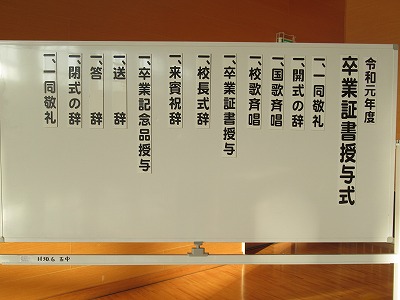 令和元年度
卒業証書授与式
一、一同敬礼
一、開式の辞
一、国歌斉唱
一、校歌斉唱
一、卒業証書授与
一、校長式辞
一、来賓祝辞
一、卒業記念品授与
一、送辞
一、答辞
一、閉式の辞
一、一同敬礼